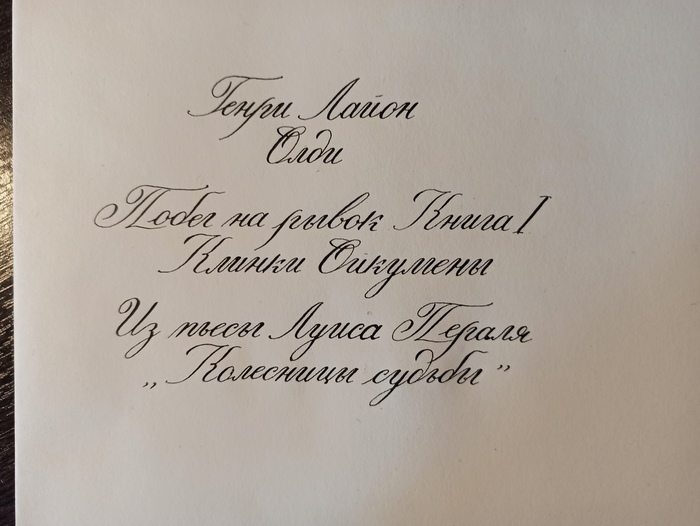 Генри Лайон
Олди
Побег на рывок Книга I
Клинки Ойкумены
Из пьесы Луиса Пераля
„Колесницы судьбы”